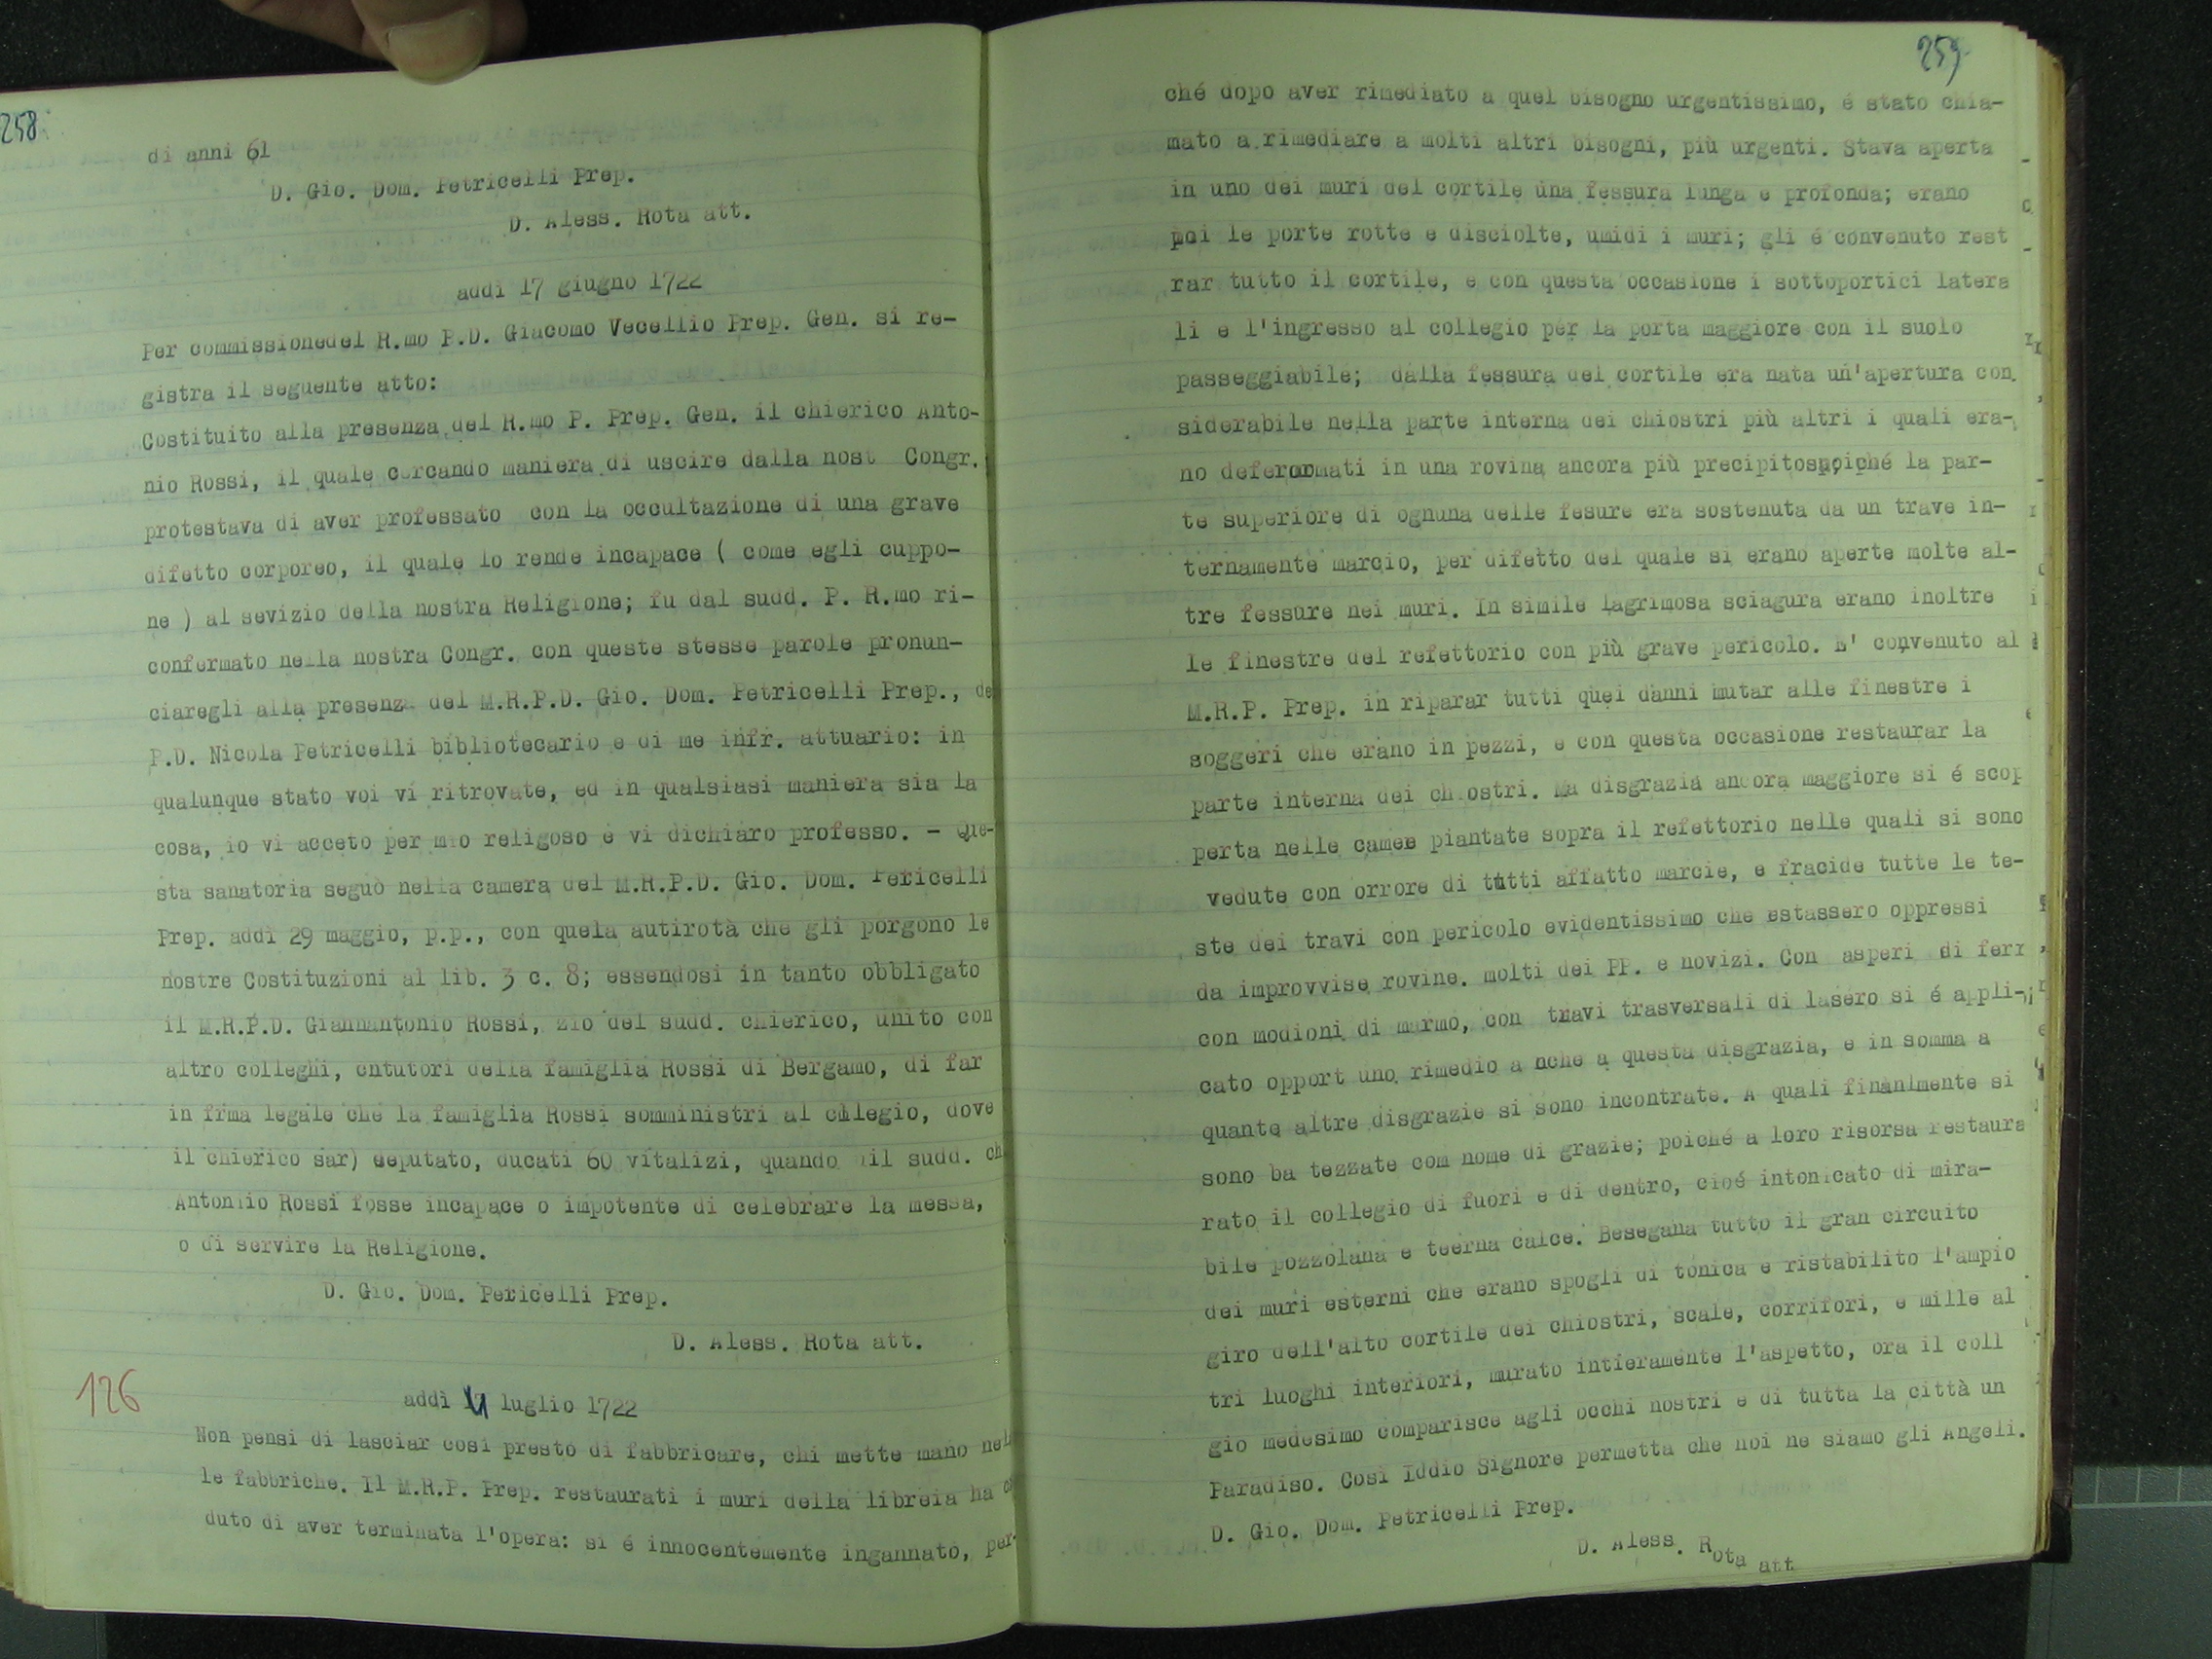 258.
di anni 61
D. Gio. Dom. Petricelli Prep.
D. Aless. Rota att.
addì 17 giugno 1722
Per commissionedel R.mo P.D. Giacomo Vecellio Prep. Gen. si re-
gistra il seguente atto:
Costituito alla presenza del R.mo P. Prep. Gen. il chierico Anto-
nio Rossi, il quale cercando maniera di uscire dalla nost Congr.
protestava di aver professato con la occultazione di una grave
difetto corporeo, il quale lo rende incapace ( come egli cuppo-
ne ) al sevizio della nostra Religione; fu dal sudd. P. R.mo ri-
confermato nella nostra Congr. con queste stesse parole pronun-
ciaregli alla presenza del M.R.P.D. Gio. Dom. Petricelli Prep., de
P.D. Nicola Petricelli bibliotecario e di me infr. attuario: in
qualunque stato voi vi ritrovate, ed in qualsiasi maniera sia la
cosa, io vi acceto per mio religoso e vi dichiaro professo. - Que-
sta sanatoria seguò nella camera del M.R.P.D. Gio. Dom. Pericelli
Prep. addì 29 maggio, p.p., con quela autirotà che gli porgono le
nostre Costituzioni al lib. 3 c. 8; essendosi in tanto obbligato
il M.R.P.D. Giannantonio Rossi, zio del sudd. chierico, unito con
altro colleghi, cntutori della famiglia Rossi di Bergamo, di far
in frma legale che la famiglia Rossi somministri al cllegio, dove
il chierico sar) deputato, ducati 60 vitalizi, quando il sudd. ch
Antonio Rossi fosse incapace o impotente di celebrare la messa,
o di servire la Religione.
D. Gio. Dom. Petricelli Prep.
D. Aless. Rota att.
126
addì luglio 1722
Non pensi di lasciar così presto di fabbricare, chi mette mano nel
le fabbriche. Il M.R.P. Prep. restaurati i muri della libreia ha
duto di aver terminata l'opera: si é innocentemente ingannato, per-
259.
ché dopo aver rimediato a quel bisogno urgentissimo, é stato chia-
mato a rimediare a molti altri bisogni, più urgenti. Stava aperta
in uno dei muri del cortile una fessura lunga e profonda; erano
poi le porte rotte e disciolte, umidi i muri; gli é convenuto rest
rar tutto il cortile, e con questa occasione i sottoportici latera
li e l'ingresso al collegio per la porta maggiore con il suolo
passeggiabile; dalla fessura del cortile era nata un'apertura con
siderabile nella parte interna dei chiostri più altri i quali era-
no deferormati in una rovina ancora più precipitosa,poiché la par-
te superiore di ognuna delle fesure era sostenuta da un trave in-
ternamente marcio, per difetto del quale si erano aperte molte al-
tre fessure nei muri. In simile lagrimosa sciagura erano inoltre
le finestre del refettorio con più grave pericolo. E' convenuto al
M.R.P. Prep. in riparar tutti quei danni mutar alle finestre i
soggeri che erano in pezzi, e con questa occasione restaurar la
parte interna dei chiostri. Ma disgrazia ancora maggiore si é scop
perta nelle camee piantate sopra il refettorio nelle quali si sono
vedute con orrore di tutti affatto marcie, e fracide tutte le te-
ste dei travi con pericolo evidentissimo che estassero oppressi
da improvvise rovine. molti dei PP. e novizi. Con asperi di ferr
con modioni di marmo, con travi trasversali di lasero si é appli-
cato opport uno rimedio a nche a questa disgrazia, e in somma a
quante altre disgrazie si sono incontrate. A quali finanlmente si
sono ba tezzate com nome di grazie; poiché a loro risorsa restaura
rato il collegio di fuori e di dentro, cioé intonicato di mira-
bile pozzolana e teerna calce. Besegana tutto il gran circuito
dei muri esterni che erano spogli di tonica e ristabilito l'ampio
giro dell'alto cortile dei chiostri, scale, corrifori, e mille al
tri luoghi interiori, murato intieramente l'aspetto, ora il coll
gio medesimo comparisce agli occhi nostri e di tutta la città un
Paradiso. Così Iddio Signore permetta che noi ne siamo gli Angeli.
D. Gio. Dom. Petricelli Prep.
D. Aless. Rota att